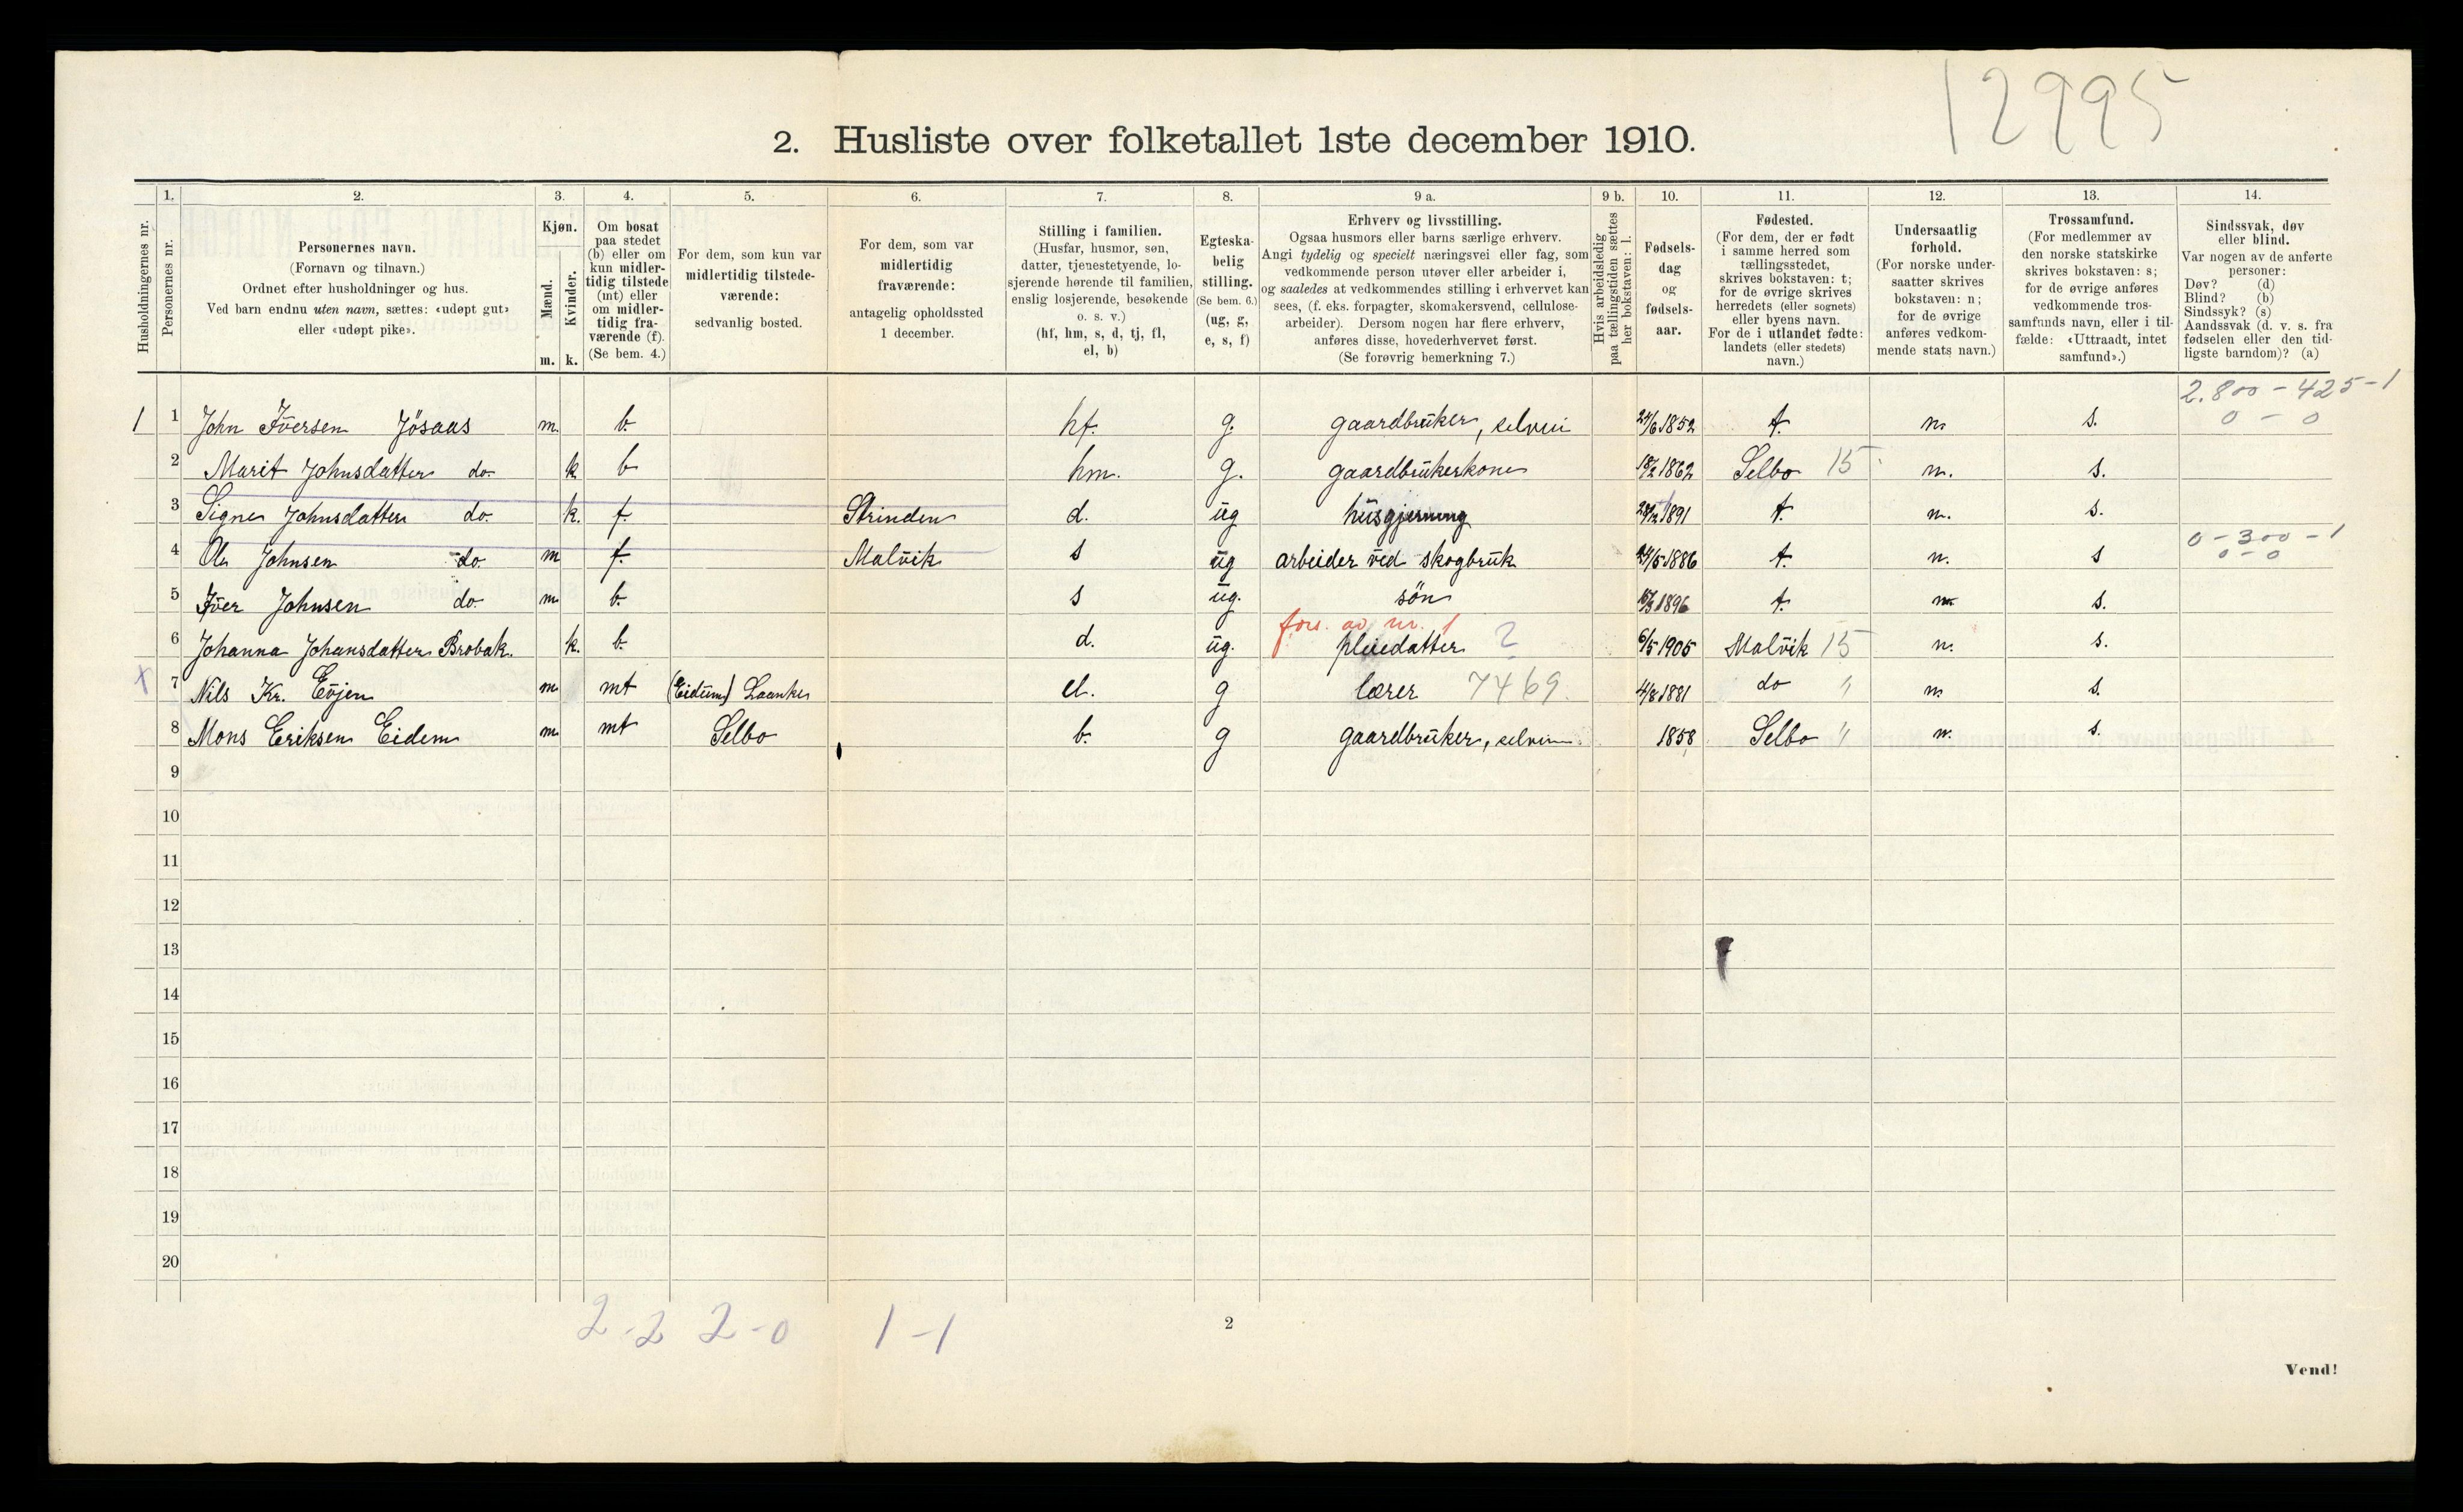 12995
2. Husliste over folketallet 1ste december 1910.
Husholdningernes nr.
1.
Personernes nr.
2.
Personernes navn.
(Fornavn og tilnavn.)
Ordnet efter husholdninger og hus.
Ved barn endnu uten navn, sættes: «udøpt gut»
eller «udøpt pike».
3.
Kjøn.
Mænd.
Kvinder.
m. k.
4.
Om bosat
paa stedet
(b) eller om
kun midler-
tidig tilstede
(mt) eller
om midler-
tidig fra-
værende (f).
(Se bem. 4.)
5.
For dem, som kun var
midlertidig tilstede-
værende:
sedvanlig bosted.
6.
For dem, som var
midlertidig
fraværende:
antagelig opholdssted
1 december.
7.
Stilling i familien.
(Husfar, husmor, søn,
datter, tjenestetyende, lo-
sjerende hørende til familien,
enslig losjerende, besøkende
o. s. v.)
(hf, hm, s, d, tj, fl,
el, b)
8.
Egteska-
belig
stilling.
(Se bem. 6.)
(ug, g,
e, s, f)
9 a.
Erhverv og livsstilling.
Ogsaa husmors eller barns særlige erhverv.
Angi tydelig og specielt næringsvei eller fag, som
vedkommende person utøver eller arbeider i,
og saaledes at vedkommendes stilling i erhvervet kan
sees, (f. eks. forpagter, skomakersvend, cellulose-
arbeider). Dersom nogen har flere erhverv,
anføres disse, hovederhvervet først.
(Se forøvrig bemerkning 7.)
9 b.
Hvis arbeidsledig
paa tællingstiden sættes
her bokstaven: l.
10.
Fødsels-
dag
og
fødsels-
aar.
11.
Fødested.
(For dem, der er født
i samme herred som
tællingsstedet,
skrives bokstaven: t;
for de øvrige skrives
herredets (eller sognets)
eller byens navn.
For de i utlandet fødte:
landets (eller stedets)
navn.)
12.
Undersaatlig
forhold.
(For norske under-
saatter skrives
bokstaven: n;
for de øvrige
anføres vedkom-
mende stats navn.)
13.
Trossamfund.
(For medlemmer av
den norske statskirke
skrives bokstaven: s;
for de øvrige anføres
vedkommende tros-
samfunds navn, eller i til-
fælde: «Uttraadt, intet
samfund».)
14.
Sindssvak, døv
eller blind.
Var nogen av de anførte
personer:
Døv? (d)
Blind? (b)
Sindssyk? (s)
Aandssvak (d. v. s. fra
fødselen eller den tid-
ligste barndom)? (a)
2.800 - 425 - 1
1 1 John Iversen Jösaas m. b. hf. g. gaardbruker, selvei 24/6 1852 t. n. s. 0 - 0
2 Marit Johnsdatter do. k b hm. g. gaardbrukerkone 18/2 1862 Selbo 15 n. s.
3 Signe Johnsdatter do. k. f. Strinden d. ug husgjerning 1891 t. n. s.
0 - 300 - 1
4 Ole Johnsen do. m f. Malvik s ug arbeider ved skogbruk 24/5 1886 t. n. s 0 - 0
5 Iver Johnsen do. m. b. s ug. sön 1896 t. n. s.
fors. av nr. 1
6 Johanna Johansdatter Brobak. k. b. d. ug. pleiedatter ? 6/5 1905 Malvik 15 n. s.
x 7 Nils Kr. Evjen m. mt (Eidum) Laanke el. g lærer 7469. 4/8 1881 do " n. s.
8 Mons Eriksen Eidem m. mt Selbo b. g gaardbruker, selveier 1858 Selbo " n. s.
9
10
11
12
13
14
15
16
17
18
19
20
2 - 2 2 - 0 1 - 1
2
Vend!